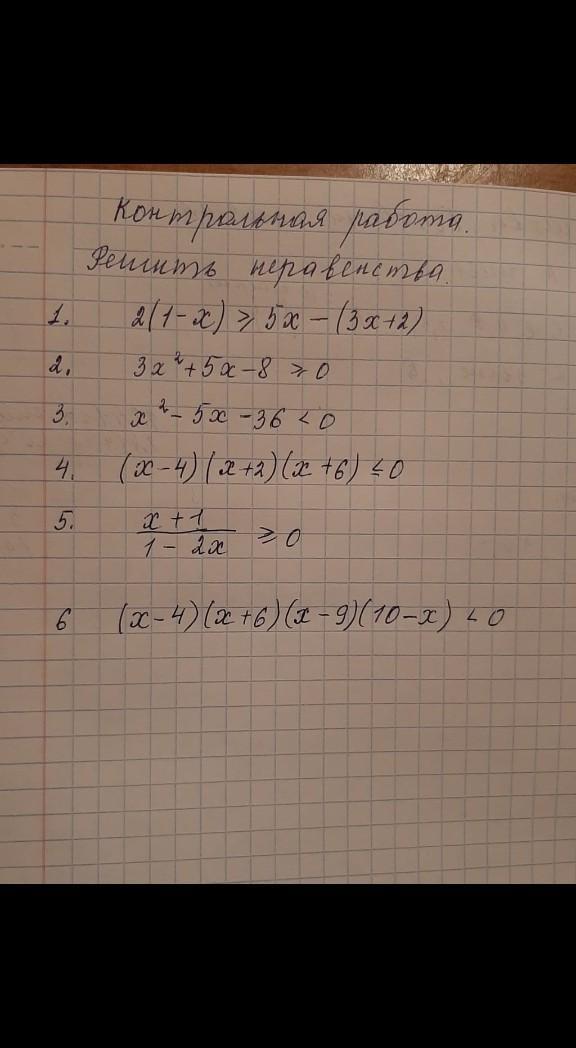 Контрольная работа.
Решить неравенства.
1. 2(1-x) ⩾ 5x - (3x+2)
2. 3x² + 5x - 8 ⩾ 0
3. x² - 5x - 36 < 0
4. (x-4)(x+2)(x+6) ≤ 0
5. (x+1)/(1-2x) ⩾ 0
6 (x-4)(x+6)(x-9)(10-x) < 0